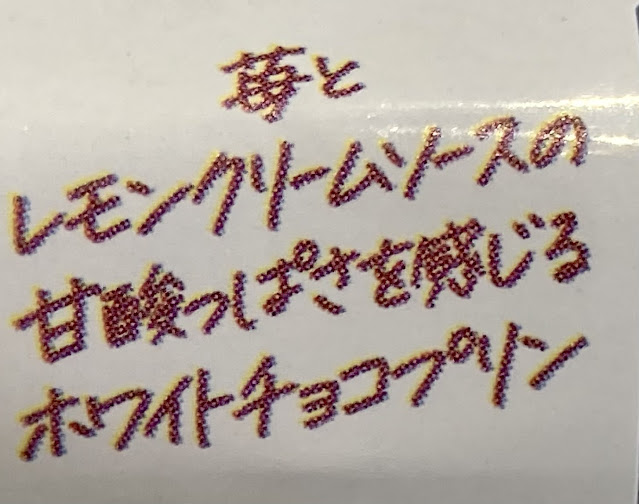 苺と
レモンクリームソースの
甘酸っぱさを感じる
ホワイトチョコプリン